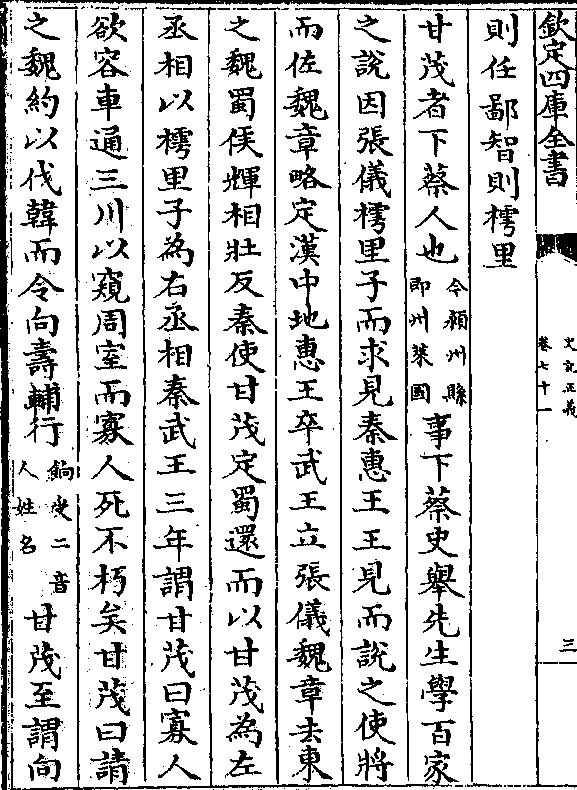 欽定四庫全書
史記正義
卷七十一
三
則任鄙智則樗里
甘茂者下蔡人也今潁州縣即州萊國事下蔡史舉先生學百家
之說因張儀樗里子而求見秦惠王王見而說之使將
而佐魏章略定漢中地惠王卒武王立張儀魏章去東
之魏蜀侯煇相壯反秦使甘茂定蜀還而以甘茂為左
丞相以樗里子為右丞相秦武王三年謂甘茂曰寡人
欲容車通三川以窺周室而寡人死不朽矣甘茂曰請
之魏約以伐韓而令向壽輔行餉受二音人姓名甘茂至謂向